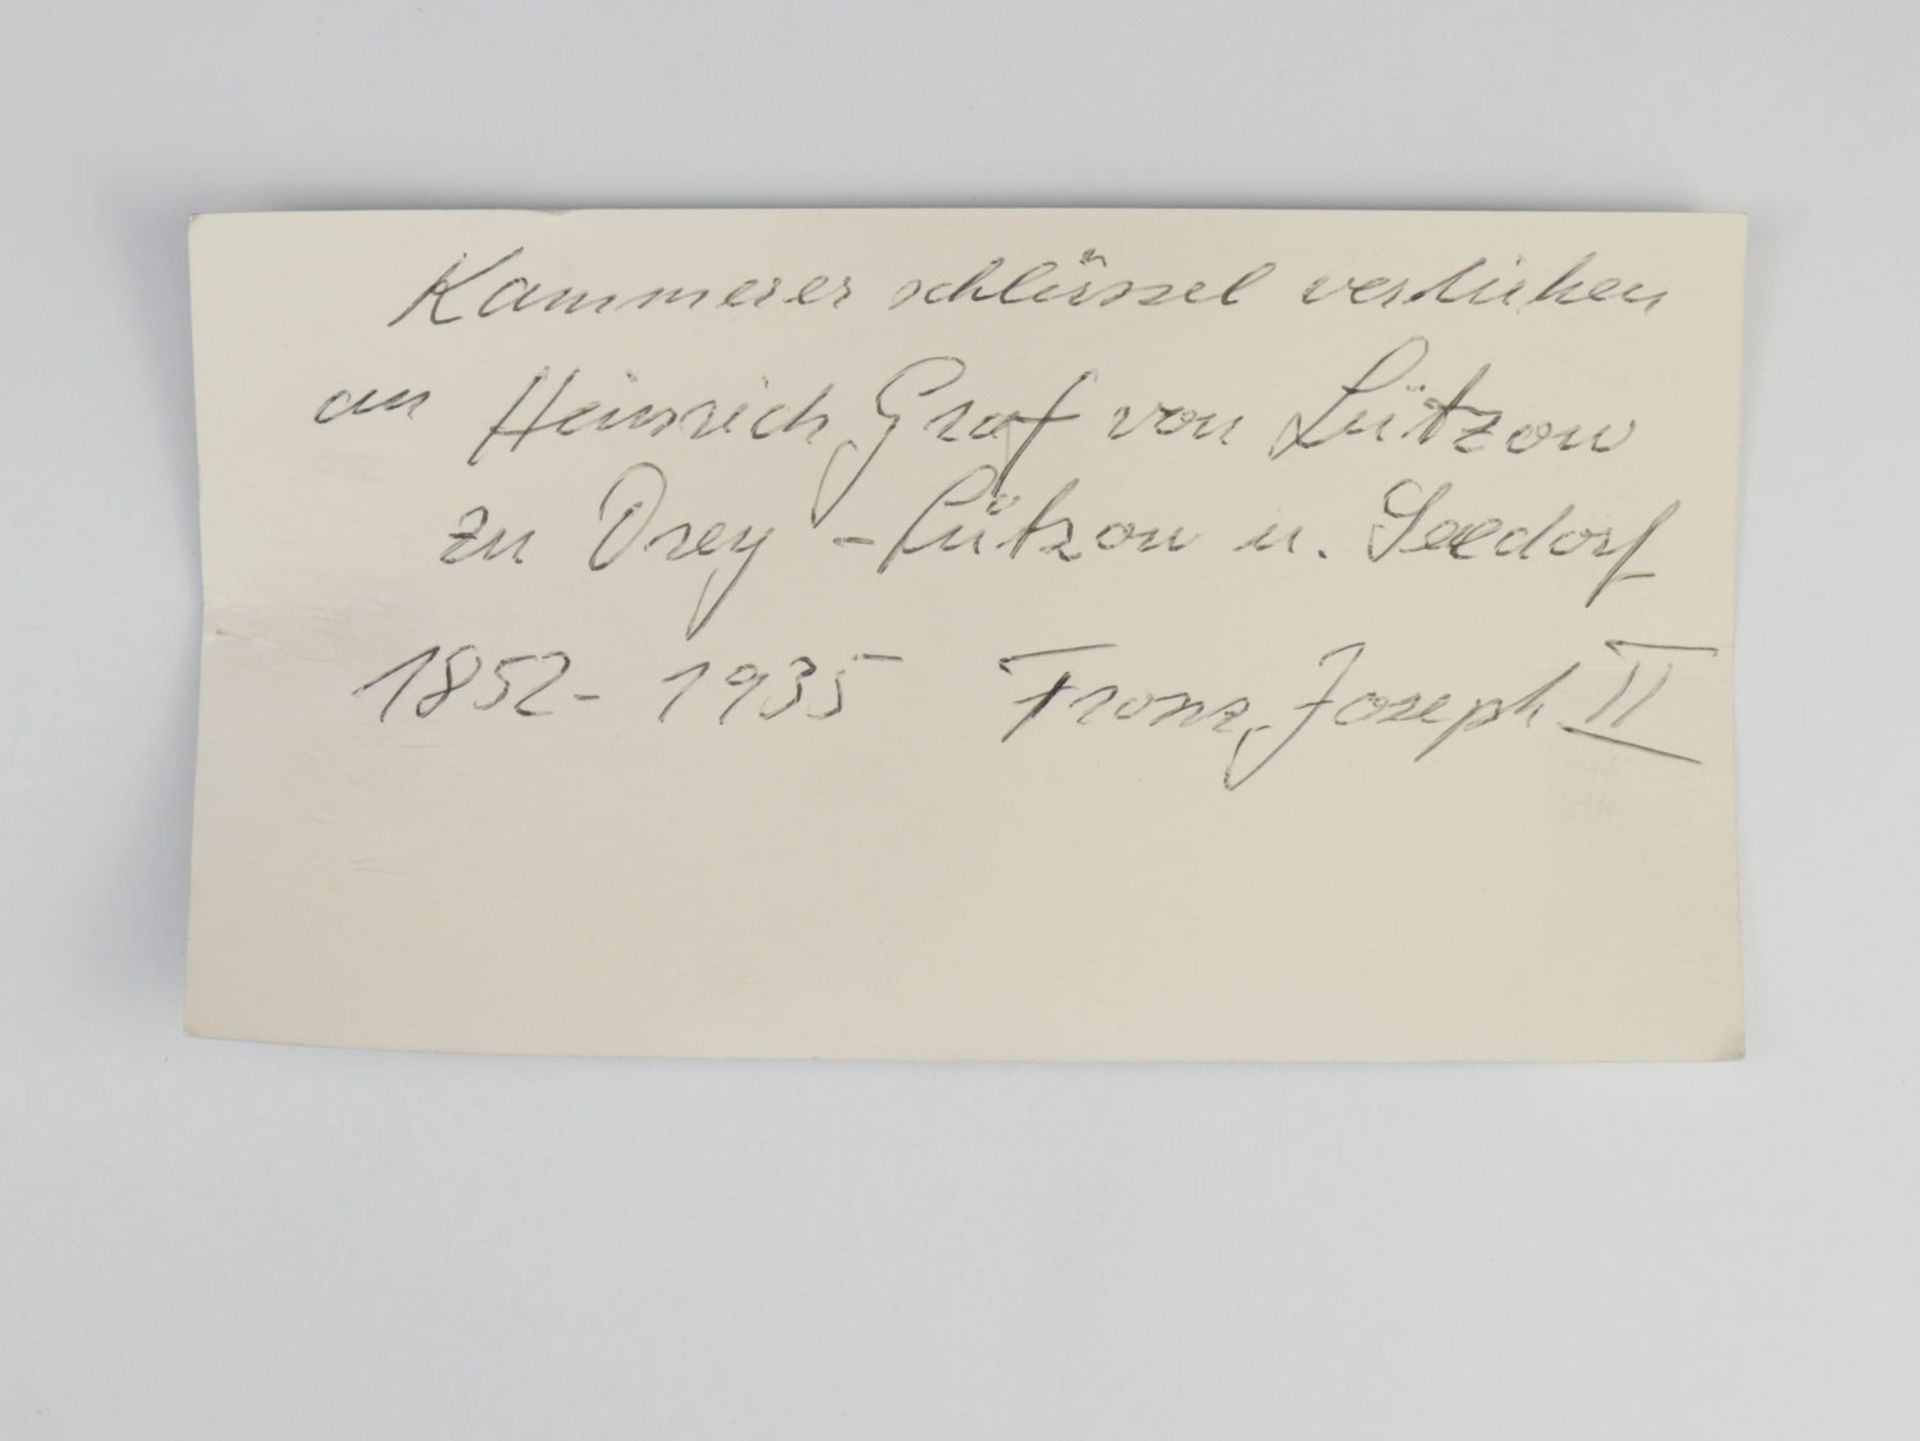 Kammerer schlüssel verliehen
an Heinrich Graf von Lützow
zu Drey-Lützow u. Seedorf
1852-1935 Franz Joseph II